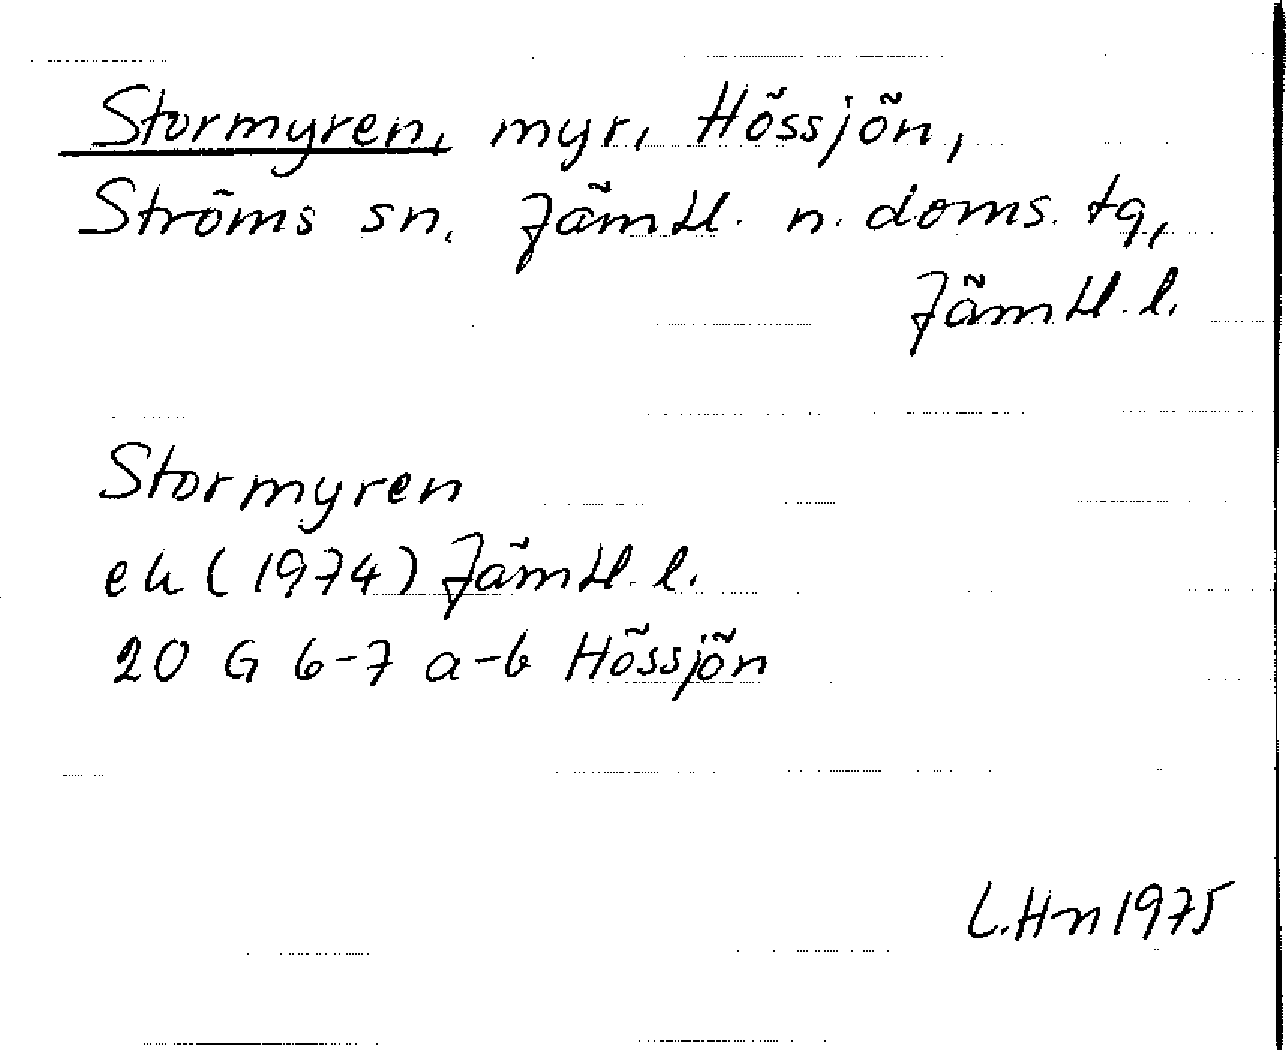 Stormyren, myr, Hössjön,
Ströms sn, Jämtl. n. doms. tg,
Jämtl. l.
Stormyren
ek (1974) Jämtl. l.
20 G 6-7 a-b Hössjön
L.Hn 1975